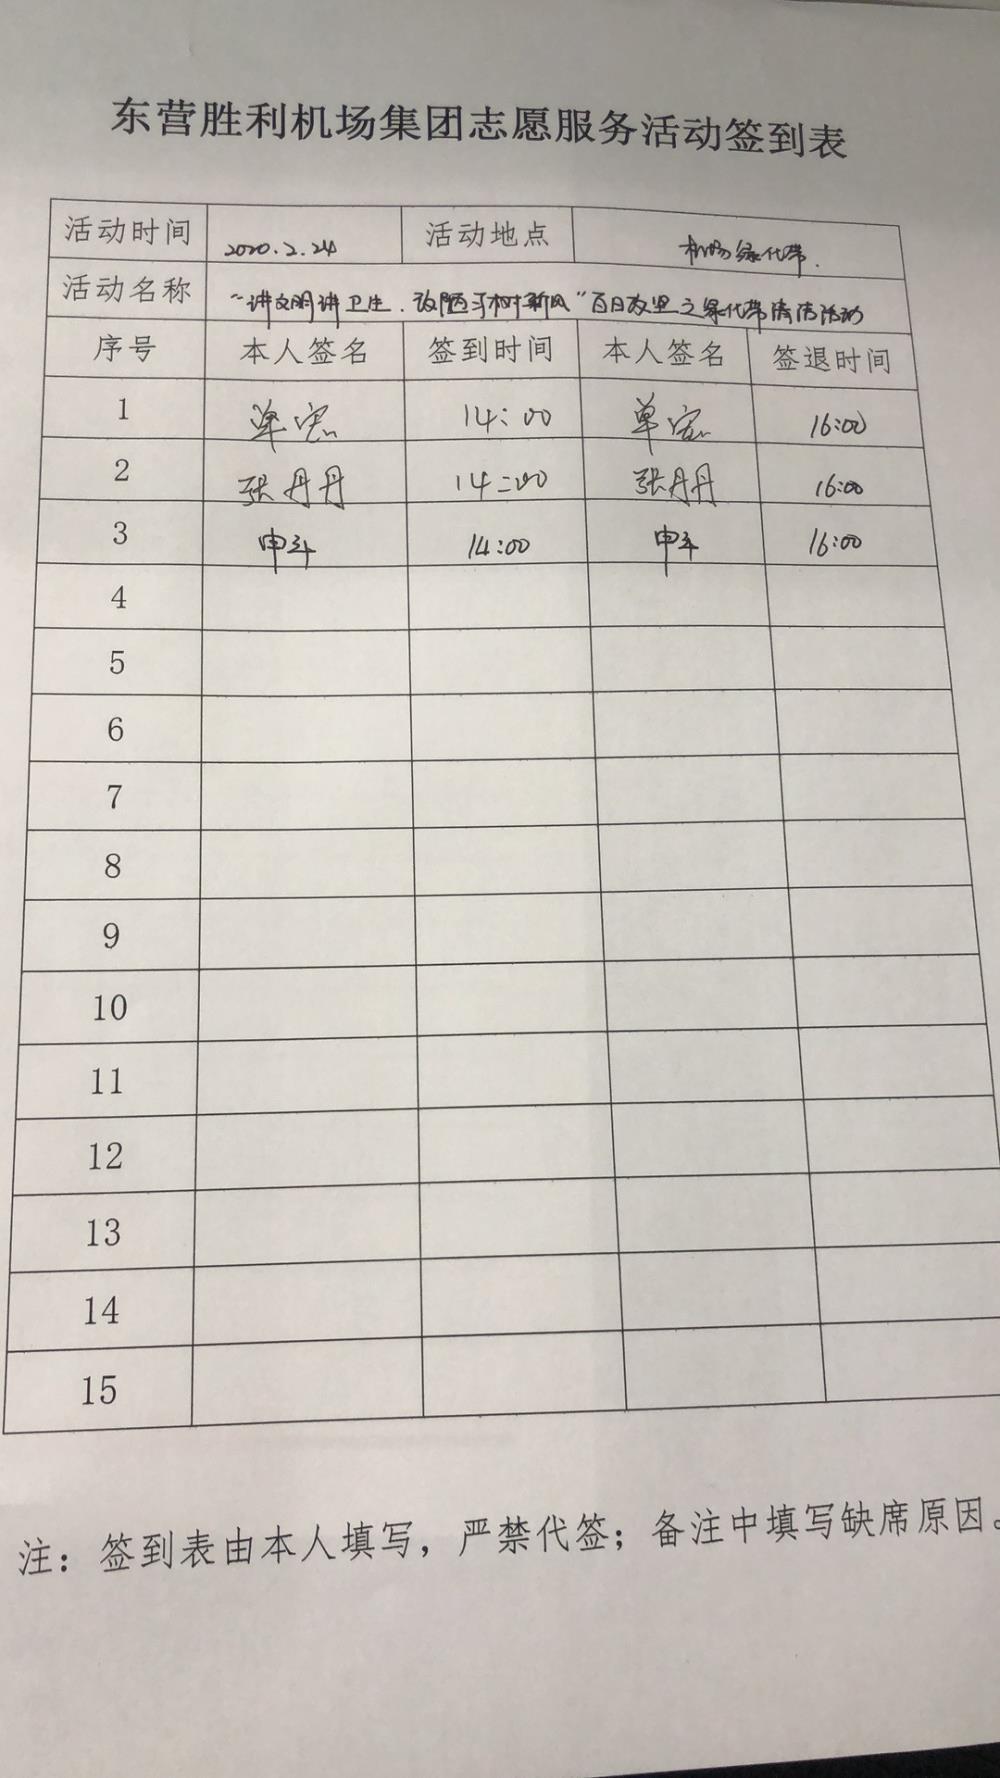 东营胜利机场集团志愿服务活动签到表
活动时间 2020.2.24 活动地点 机场绿化带.
活动名称 “讲文明讲卫生.改陋习树新风”百日攻坚之绿化带清洁活动
序号 本人签名 签到时间 本人签名 签退时间
1 单宏 14:00 单宏 16:00
2 张丹丹 14:00 张丹丹 16:00
3 申斗 14:00 申斗 16:00
4
5
6
7
8
9
10
11
12
13
14
15
注：签到表由本人填写，严禁代签；备注中填写缺席原因。